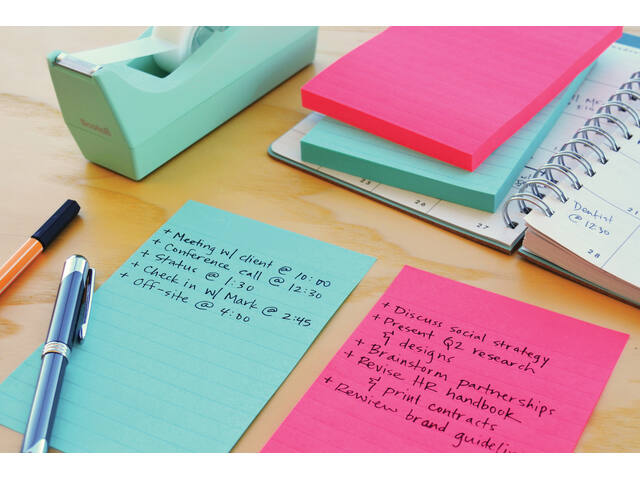 Scotch
25
26
27
Dentist
@ 12:30
28
+ Meeting w/ client @ 10:00
+ Conference call @ 12:30
+ Status @ 1:30
+ Check in w/ Mark @ 2:45
+ Off-site @ 4:00
+ Discuss social strategy
+ Present Q2 research
& designs
+ Brainstorm partnerships
+ Revise HR handbook
& print contracts
+ Rewiew brand guidelin